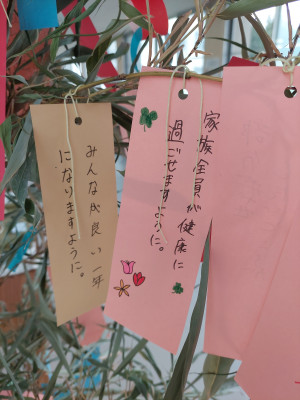 みんな成良い一年
になりますように。
家族全員が健康に
過ごせますように。